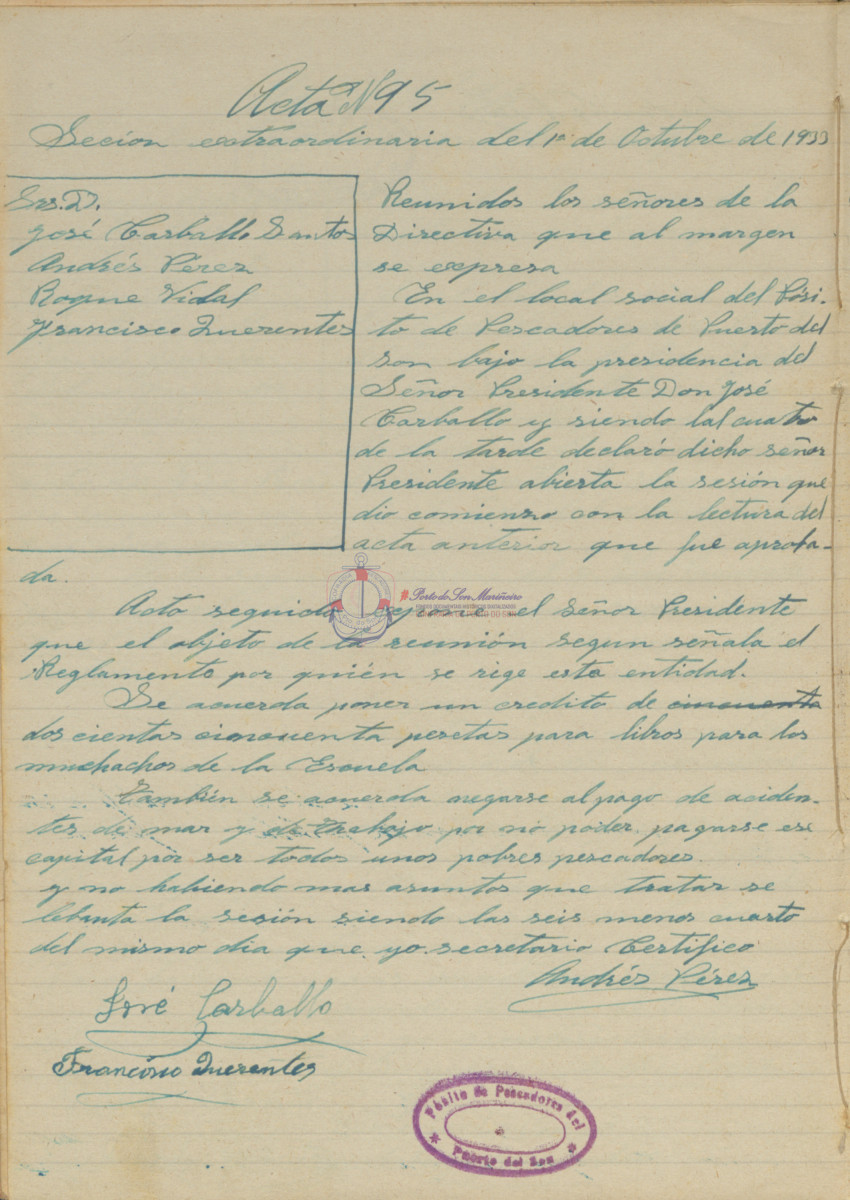 Acta Nº 95
Seción extraordinaria del 1º de Octubre de 1933
Srs. D.
José Carballo Santos
Andrés Pérez
Roque Vidal
Francisco Querentes
Reunidos los señores de la
Directiva que al margen
se expresa
En el local social del Pósi-
to de Pescadores de Puerto del
son bajo la presidencia del
Señor Presidente Don José
Carballo y siendo lal cuatro
de la tarde declaró dicho señor
Presidente abierta la sesión que
dio comienzo con la lectura del
acta anterior que fue aproba-
da.
Acto seguido expone el Señor Presidente
que el objeto de la reunión segun señala el
Reglamento por quién se rige esta entidad.
Se acuerda poner un credito de cincuenta
dos cientas cincuenta pesetas para libros para los
muchachos de la Escuela
También se acuerda negarse al pago de aciden-
tes de mar y de trabajo por no poder pagarse ese
capital por ser todos unos pobres pescadores.
y no habiendo mas asuntos que tratar se
lebanta la sesión siendo las seis menos cuarto
del mismo dia que yo secretario Certifico
Andrés Pérez
José Carballo
Francisco Querentes
Pósito de Pescadores del
Puerto del Son
#Porto do Son Mariñeiro